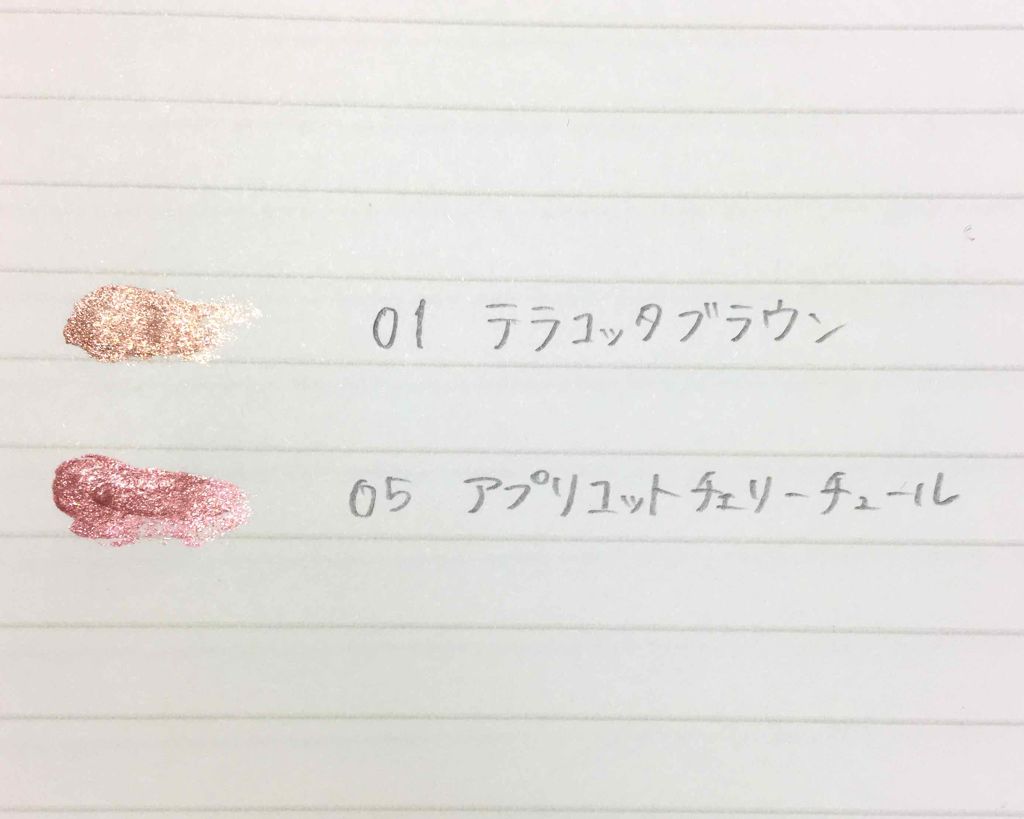 01 テラコッタブラウン
05 アプリコットチェリーチュール